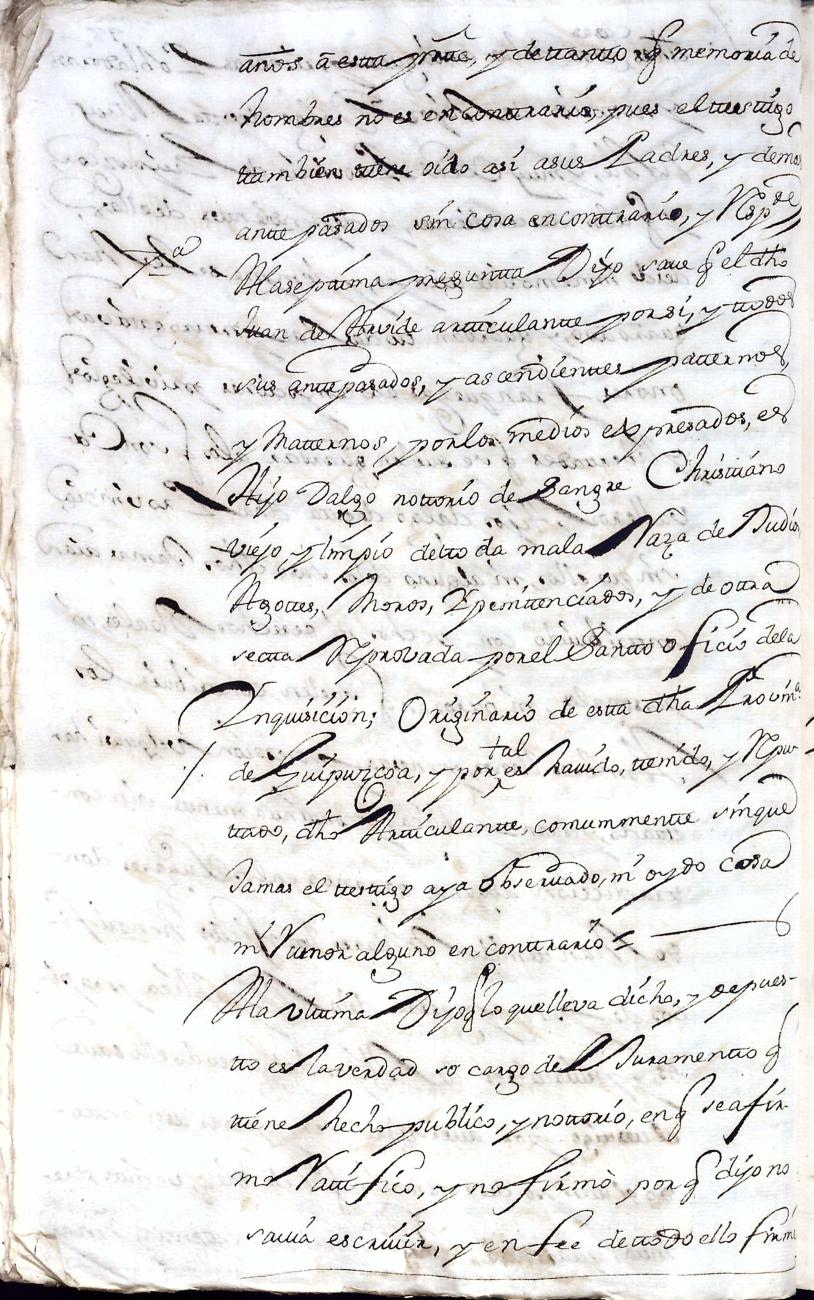 años a esta parte, y de ttantto q memoria de
hombres no es en conttrario, pues el ttesttigo
ttambien ttiene oido asi asus Padres, y demas
antte pasados sin cosa encontrario, y Resp.de
7.a
Ala septtima preguntta Dijo save q el dho
Juan de Arvide artticulantte por si, y ttodos
sus anttepasados, y ascendienttes patternos,
y Matternos, por los medios expresados, es
Hijo Dalgo nottorio de Sangre Christtiano
viejo y limpio detto da mala Raza de Judios
Agottes, Moros, Y penittenciados, y de ottra
sectta Reprovada por el Santto oficio dela
Ynquisicion; Originario de estta dha Provin.a
de Guipuzcoa, y por tal es havido, ttenido, y Repu-
ttado, dho Artticulantte, comunmentte sin que
Jamas el ttesttigo aya observado, ni oydo cosa
ni Rumor alguno en conttrario =
Ala ulttima Dijo q lo que lleva dicho, y depues-
tto es la verdad so cargo de el Juramentto q
ttiene hecho publico, y nottorio, en q se afir-
mo Rattifico, y no firmò por q dijo no
savia escrivir, y en fee dettodo ello firme